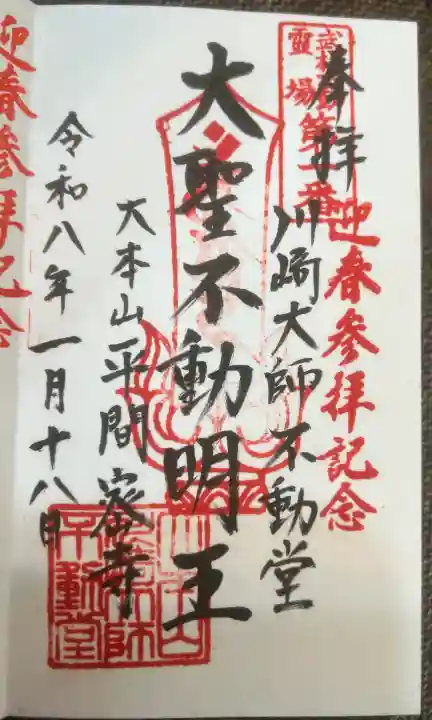 奉拝
霊場
第一番
迎春参拝記念
川崎大師不動堂
大聖不動明王
大本山平間寺
令和八年一月十八日
迎春参拝記念